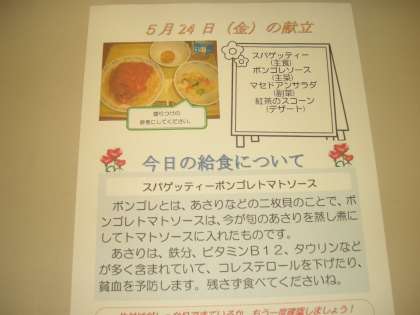 5月24日(金)の献立
スパゲッティー
(主食)
ボンゴレソース
(主菜)
マセドアンサラダ
(副菜)
紅茶のスコーン
(デザート)
盛りつけの
参考にしてください。
今日の給食について
スパゲッティーボンゴレトマトソース
ボンゴレとは、あさりなどの二枚貝のことで、ボ
ンゴレトマトソースは、今が旬のあさりを蒸し煮に
してトマトソースに入れたものです。
あさりは、鉄分、ビタミンB12、タウリンなど
が多く含まれていて、コレステロールを下げたり、
貧血を予防します。残さず食べてくださいね。